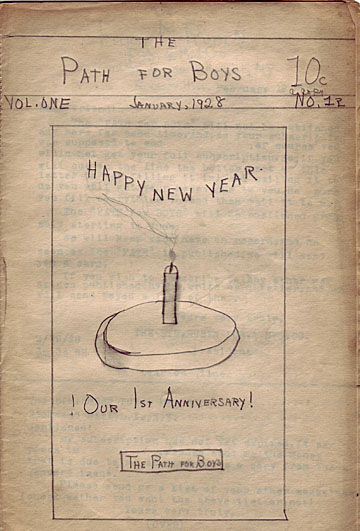 THE
PATH FOR BOYS 10c
A COPY
VOL. ONE JANUARY, 1928 NO. 12
HAPPY NEW YEAR.
! OUR 1ST ANNIVERSARY!
THE PATH FOR BOYS